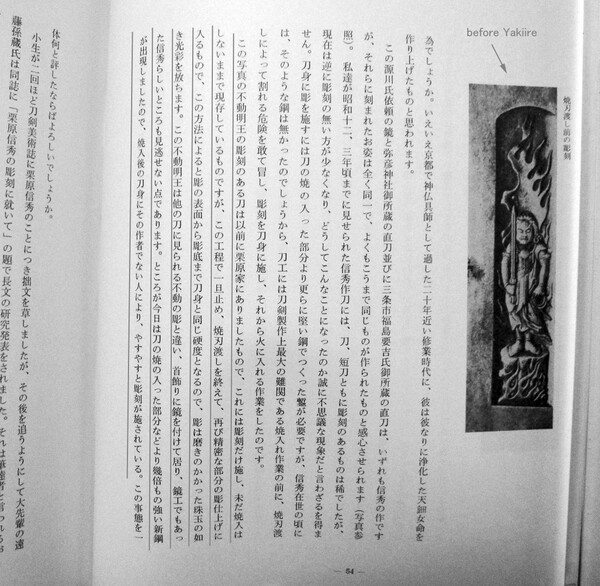 before Yakiire
焼刃渡し前の彫刻
為でしょうか。いえいえ京都で神仏具師として過した二十年近い修業時代に、彼は彼なりに浄化した天鈿女命を
作り上げたものと思われます。
この源川氏依頼の鏡と弥彦神社御所蔵の直刀並びに三条市福島要吉氏御所蔵の直刀は、いずれも信秀の作です
が、それらに刻まれたお姿は全く同一で、よくもこうまで同じものが作られたものと感心させられます(写真参
照)。私達が昭和十二、三年頃までに見せられた信秀作刀には、刀、短刀ともに彫刻のあるものは稀でしたが、
現在は逆に彫刻の無い方が少なくなり、どうしてこんなことになったのか誠に不思議な現象だと言わざるを得ま
せん。刀身に彫を施すには刀の焼の入った部分より更らに堅い鋼でつくった鏨が必要ですが、信秀在世の頃に
は、そのような鋼は無かったのでしょうから、刀工には刀剣製作上最大の難関である焼入れ作業の前に、焼刃渡
しによって割れる危険を敢て冒し、彫刻を刀身に施し、それから火に入れる作業をしたのです。
この写真の不動明王の彫刻のある刀は以前に栗原家にありましたもので、これには彫刻だけ施し、未だ焼入は
しないままで現存しているものですが、この工程で一旦止め、焼刃渡しを終えて、再び精密な部分の彫仕上げに
入るもので、この方法によると彫の表面から彫底まで刀身と同じ硬度となるので、彫は磨きのかかった珠玉の如
き光彩を放ちます。この不動明王は他の刀に見られる不動の彫と違い、首飾りに鏡を付けて居り、鏡工でもあっ
た信秀らしいところも見逃せない点であります。ところが今日は刀の焼の入った部分などより幾倍もの強い新鋼
が出現しましたので、焼入後の刀身にその作者でない人により、やすやすと彫刻が施されている。この事態を一
体何と評したならばよろしいでしょうか。
小生が二回ほど刀剣美術誌に栗原信秀のことにつき拙文を草しましたが、その後を追うようにして大先輩の遠
藤孫蔵氏は同誌に「栗原信秀の彫刻に就いて」の題で長文の研究発表をされました。それは
— 54 —